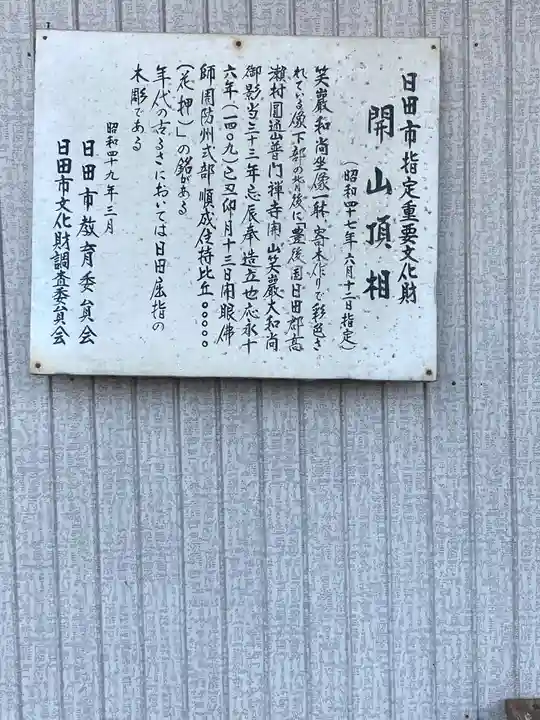 日田市指定重要文化財
開山頂相
(昭和四十七年六月十二日指定)
笑巌和尚坐像一躰、寄木作りで彩色さ
れている像下部の背後に「豊後国日田郡高
瀬村圓通山普門禅寺開山笑巌大和尚
御影当三十三年忌辰奉造立也応永十
六年(一四〇九)己丑卯月十三日開眼佛
師周防州式部 順成住持比丘○○○○○
(花押)」の銘がある
年代の古るさにおいては日田屈指の
木彫である
昭和四十九年三月
日田市教育委員会
日田市文化財調査委員会